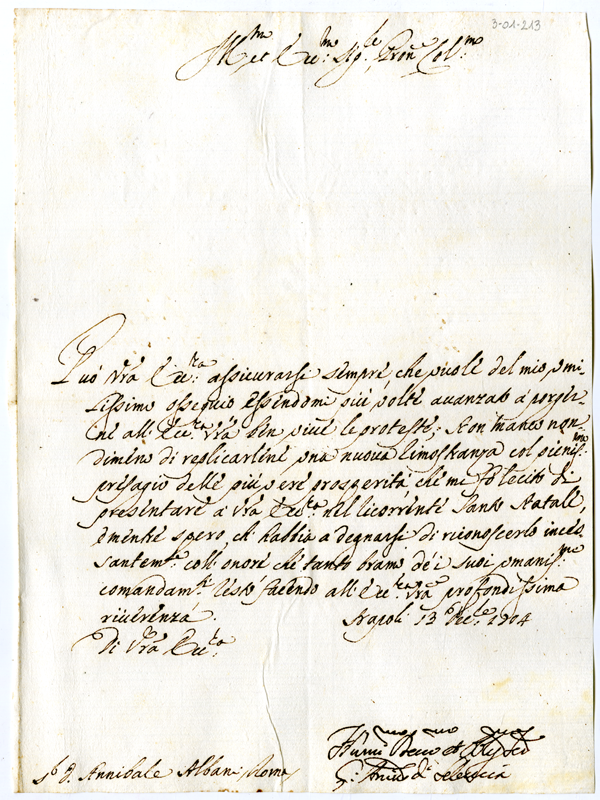 3-01-213
Ill.mo et Ecc.mo Sig.re Pron.e Col.mo
Può Vra Ecc.za assicurarsi sempre che vuole del mio umi
lissimo ossequio essendomi più volte avanzato à porger-
ne all' Ecc.za Vra ben vive le proteste; Non manco non-
dimeno di replicarline una nuova rimostranza col pieniss.mo
presagio delle più vere prosperità, che mi fò lecito di
presentare à Vra Ecc.za nel ricorrente Santo Natale,
e mentre spero, ch' habbia a degnarsi di riconoscerlo inces-
santem.te coll' onore che tanto bramo de i suoi umanis.mi
comandam.ti resto facendo all' Ecc.za Vra profondissima
riverenza.
Napoli 13 Dec.re 1704
Di Vra Ecc.za
D. Annibale Albani Roma